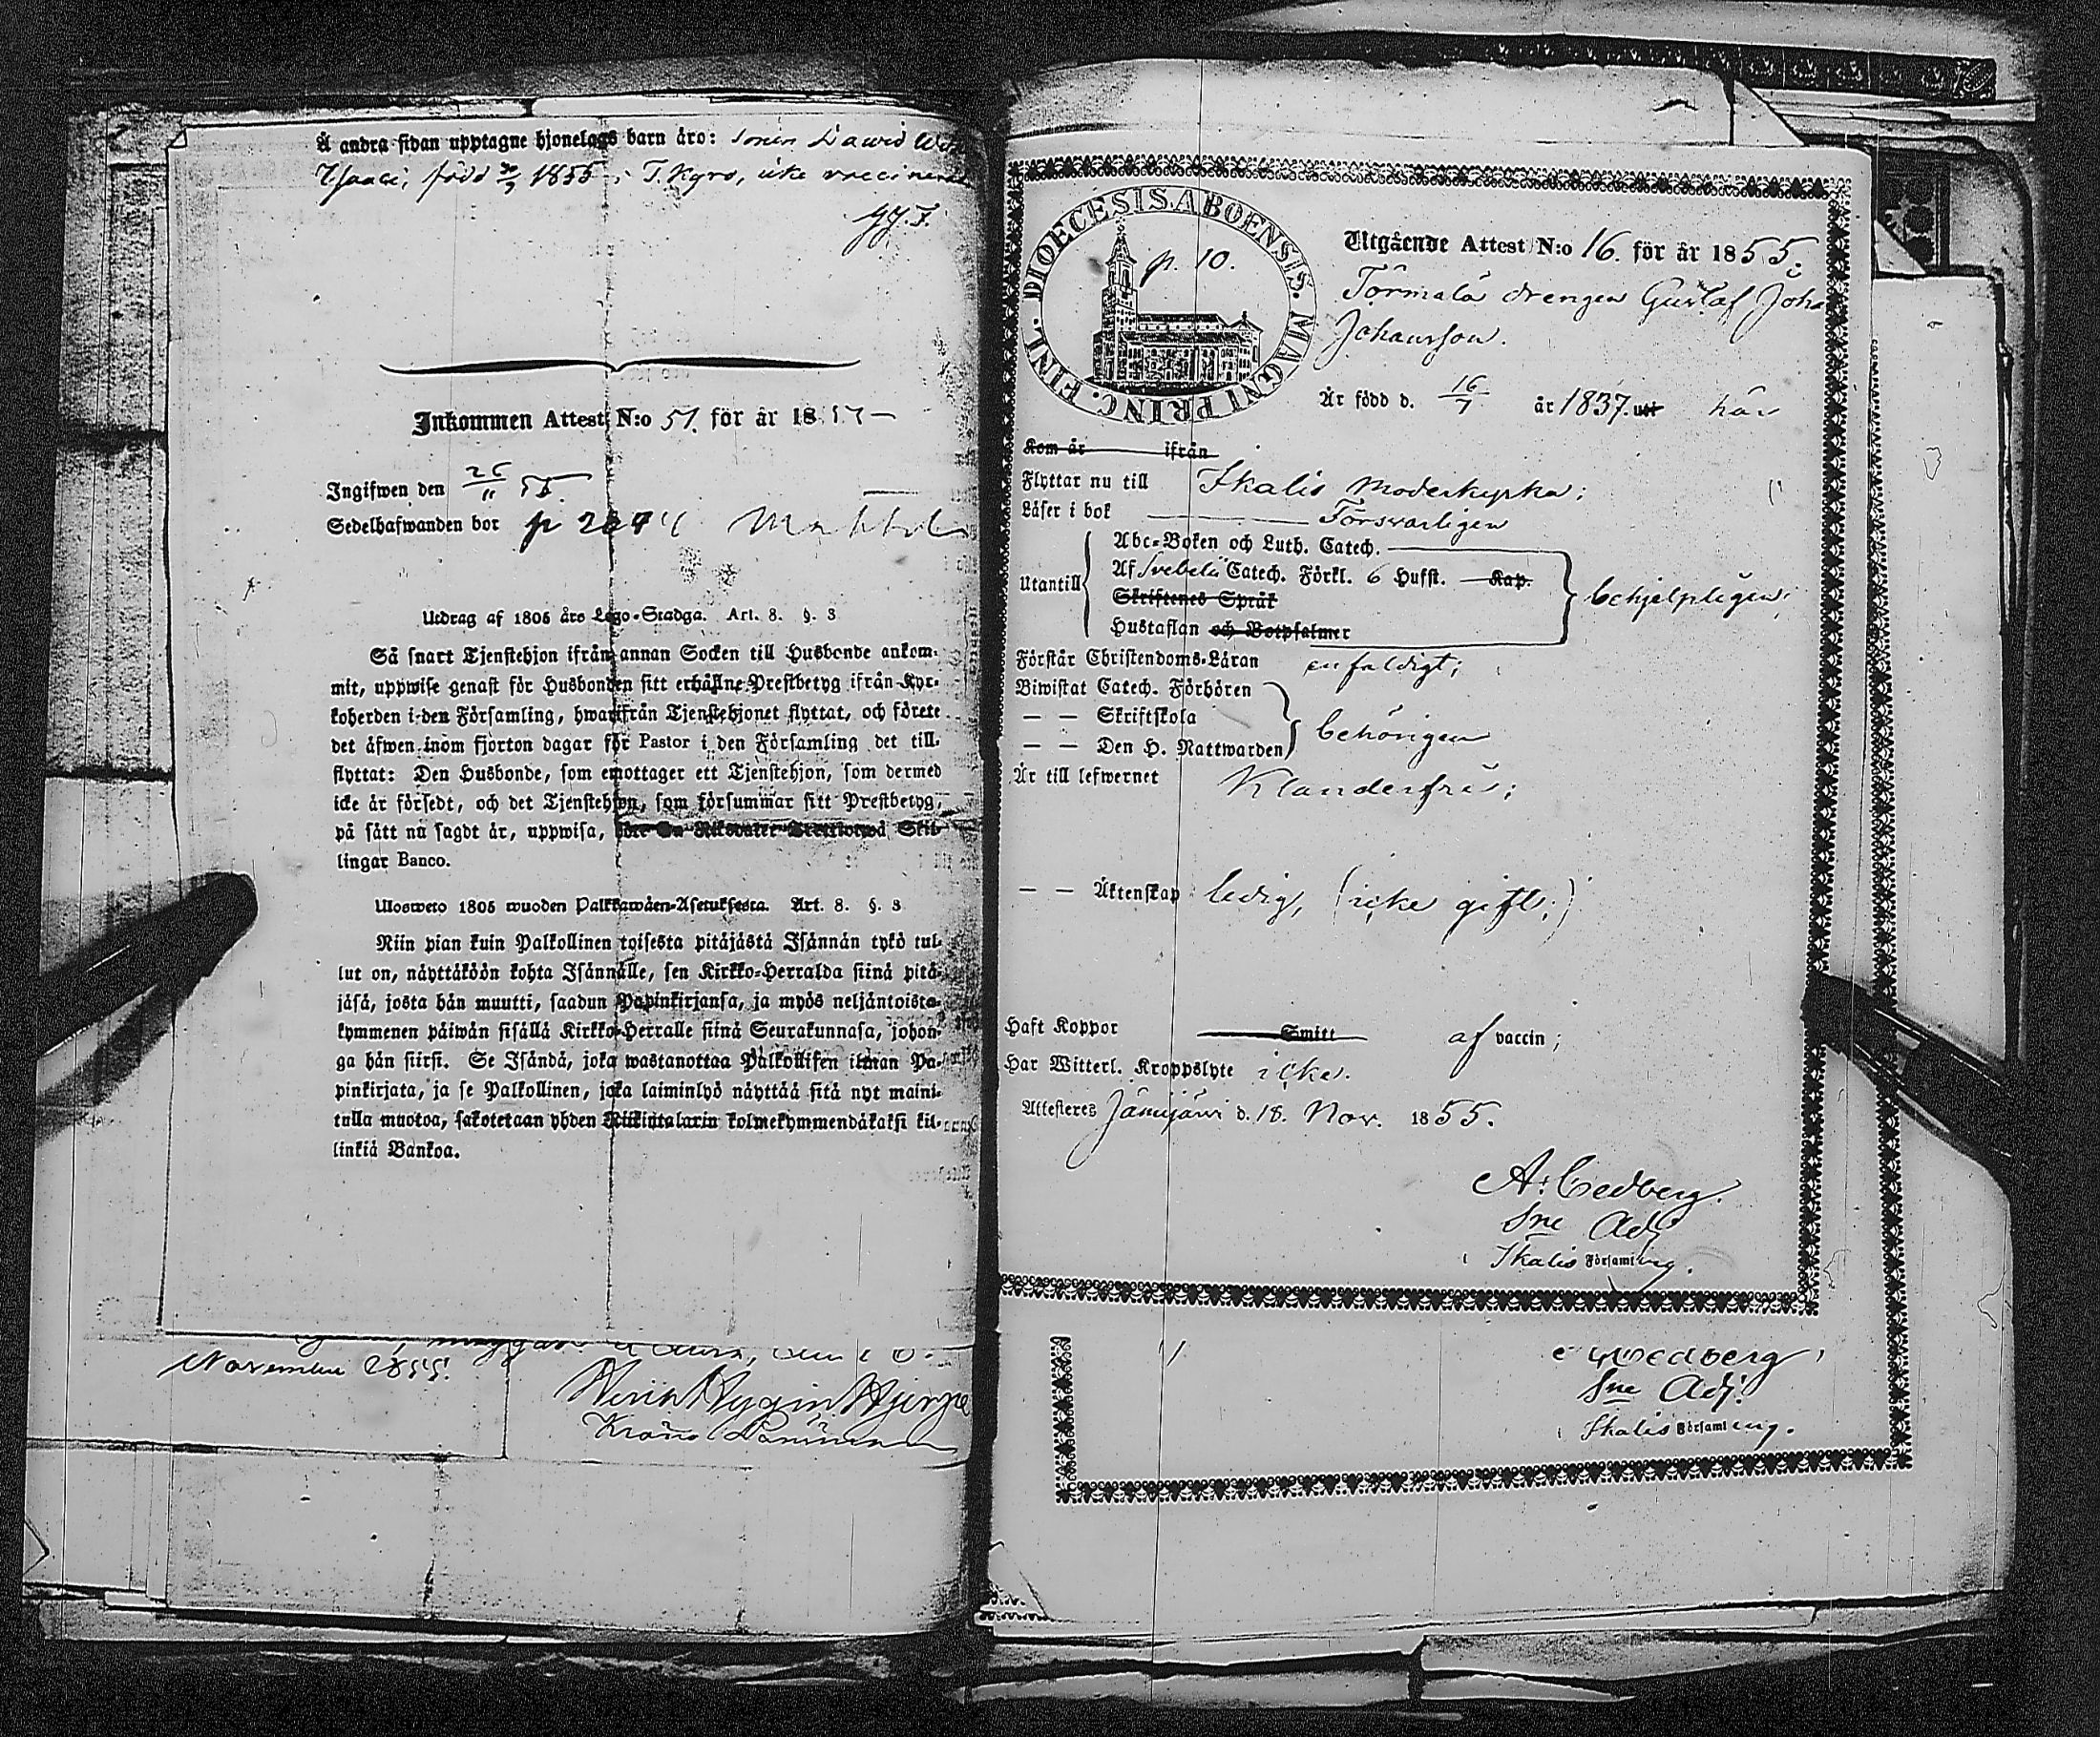 Å andra sidan upptagne hjonelags barn äro: sonen David
född 1855 i T. Kyro, icke vaccinerad
Inkommen Attest N:o 51. för år 18
Ingifwen den 26/11 55.
Sedelhafwanden bor p
Utdrag af 1805 års Lego-Stadga. Art. 8. §. 3
Så snart Tjenstehjon ifrån annan Socken till Husbonde ankom-
mit, uppwise genast för Husbonden sitt erhållne Prestbetyg ifrån Kyr-
koherden i den Församling, hwarifrån Tjenstehjonet flyttat, och förete
det äfwen inom fjorton dagar för Pastor i den Församling det till-
flyttat: Den Husbonde, som emottager ett Tjenstehjon, som dermed
icke är försedt, och det Tjenstehjon, som försummar sitt Prestbetyg,
på sätt nu sagdt är, uppwisa, Skil-
lingar Banco.
Ulosweto 1805 wuoden Palkkawäen-Asetuksesta. Art. 8. §. 3
Niin pian kuin Palkollinen toisesta pitäjästä Isännän tykö tul-
lut on, näyttäköön kohta Isännälle, sen Kirkko-Herralda siinä pitä-
jäsä, josta hän muutti, saadun Papinkirjansa, ja myös neljäntoista-
kymmenen päiwän sisällä Kirkko-Herralle siinä Seurakunnasa, johon-
ga hän siirsi. Se Isändä, joka wastanottaa Palkollisen ilman Pa-
pinkirjata, ja se Palkollinen, joka laiminlyö näyttää sitä nyt maini-
tulla muotoa, sakotetaan yhden Riikintalarin kolmekymmendäkaksi kil-
linkiä Bankoa.
November 1855.
DIOECESIS ABOENSIS. MAGNI PRINC. FINL.
p. 10.
Utgående Attest N:o 16. för år 1855.
Törmälä drengen Gustaf Joh
Johansson.
Är född d. 16/7 år 1837. uti här
Kom år ifrån
Flyttar nu till Ikalis moderkyrka;
Läser i bok Försvarligen
Utantill
Abc-Boken och Luth. Catech.
Af Svebelii Catech. Förkl. 6 Hufst. Kap.
Skriftenes Språk
Hustaflan och Botpsalmer
behjelpligen;
Förstår Christendoms-Läran enfaldigt;
Biwistat Catech. Förhören
— — Skriftskola
— — Den H. Nattwarden
behörigen
Är till lefwernet Klanderfri;
— — Äktenskap ledig, (icke gift;)
Haft Koppor Smitt af vaccin;
Har Witterl. Kroppslyte icke.
Attesteras Jämijärvi d. 18. Nov. 1855.
A. Cedberg.
Sne Adj
i Ikalis Församling.
Cedberg
Sne Adj.
i Ikalis Församling.